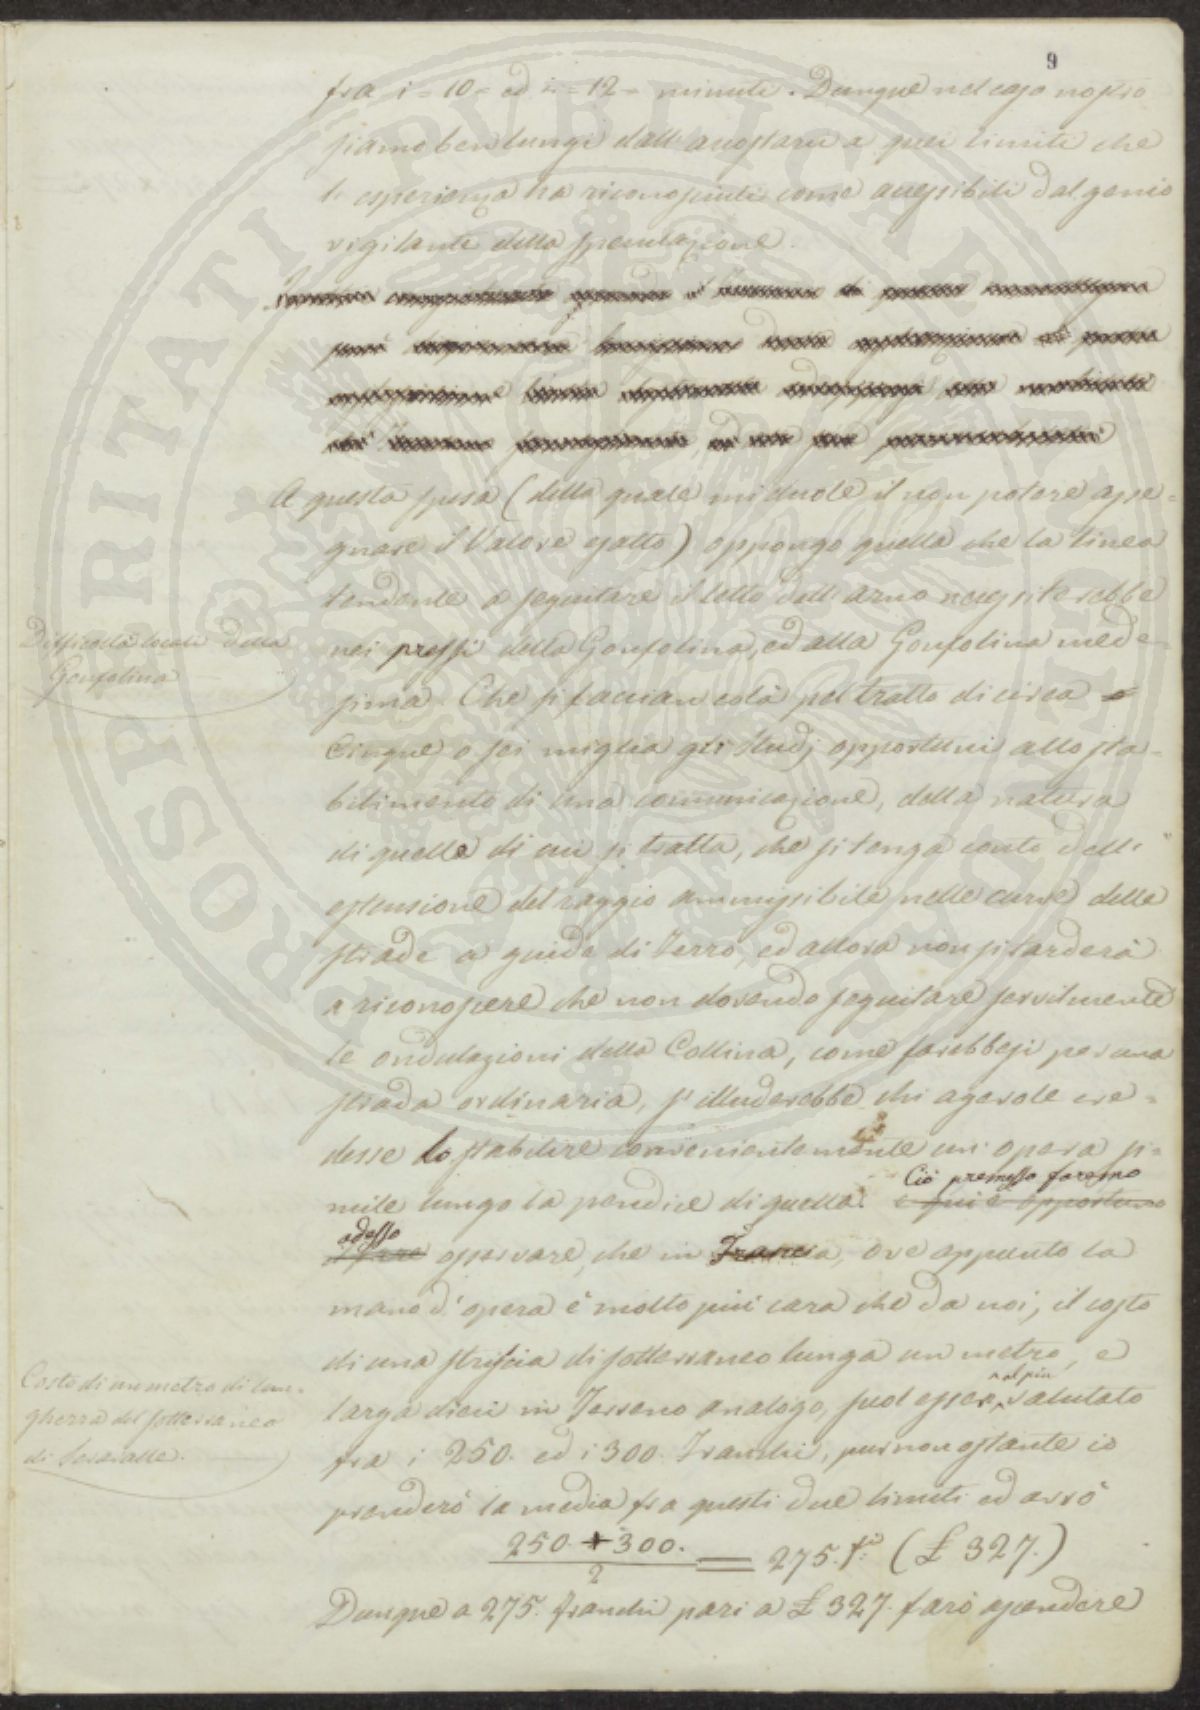 9
fra i = 10 = ed i = 12 = minuti. Dunque nel caso nostro
siamo ben lungi dall'accostarci a quei limiti che
l'esperienza ha riconosciuti come accessibili dal genio
vigilante della speculazione.
A questa spesa (della quale mi duole il non potere asse=
gnare il Valore esatto) oppongo quella che la linea
tendente a seguitare il letto dell'arno necessiterebbe
Difficoltà locali della
Gonfolina
nei pressi della Gonfolina, ed alla Gonfolina mede=
sima. Che si faccian colà pel tratto di circa
Cinque o sei miglia gli studj opportuni allo sta=
bilimento di una comunicazione, della natura
di quelle di cui si tratta, che si tenga conto dell'
estensione del raggio ammissibile nelle curve delle
strade a guide di ferro, ed allora non si tarderà
a riconoscere che non dovendo seguitare servilmente
le ondulazioni della Collina, come farebbesi per una
strada ordinaria, s'illuderebbe chi agevole cre=
desse lo stabilire convenientemente un'opera si=
mile lungo la pendice di quella. e qui è opportuno
Ciò premesso faremo
adesso
osservare, che in Francia, ove appunto la
mano d'opera è molto più cara che da noi, il costo
di una striscia di sotterraneo lunga un metro, e
Costo di un metro di lun=
ghezza del sotterraneo
di Seravalle.
larga dieci in Terreno analogo, puol esser, valutato
al più
fra i 250. ed i 300. Franchi, pur nonostante io
prenderò la media fra questi due limiti ed avrò
250. + 300. / 2 = 275. f.i (£ 327.)
Dunque a 275. franchi pari a £ 327. farò ascendere